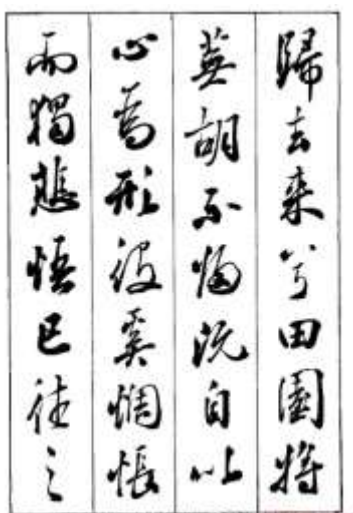 歸去来兮田園將
蕪胡不歸既自以
心為形役奚惆悵
而獨悲悟已往之